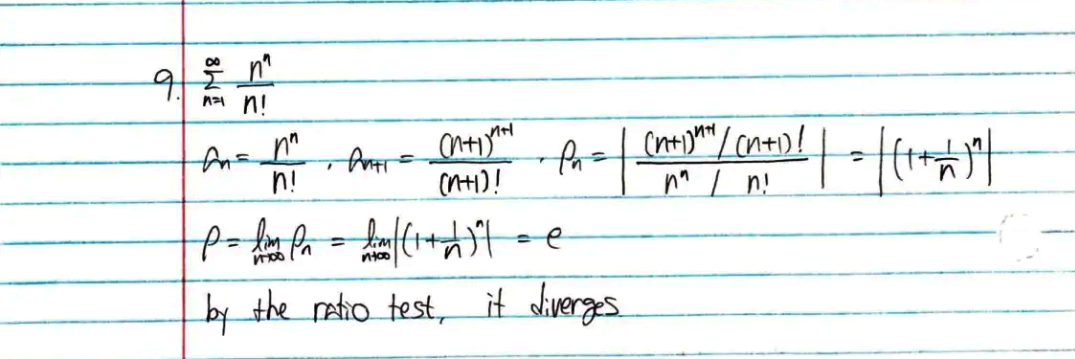 9. $\sum_{n=1}^{\infty} \frac{n^n}{n!}$
$a_n = \frac{n^n}{n!}$, $a_{n+1} = \frac{(n+1)^{n+1}}{(n+1)!}$, $\rho_n = \left| \frac{(n+1)^{n+1} / (n+1)!}{n^n / n!} \right| = \left| \left(1+\frac{1}{n}\right)^n \right|$
$\rho = \lim_{n \to \infty} \rho_n = \lim_{n \to \infty} \left| \left(1+\frac{1}{n}\right)^n \right| = e$
by the ratio test, it diverges